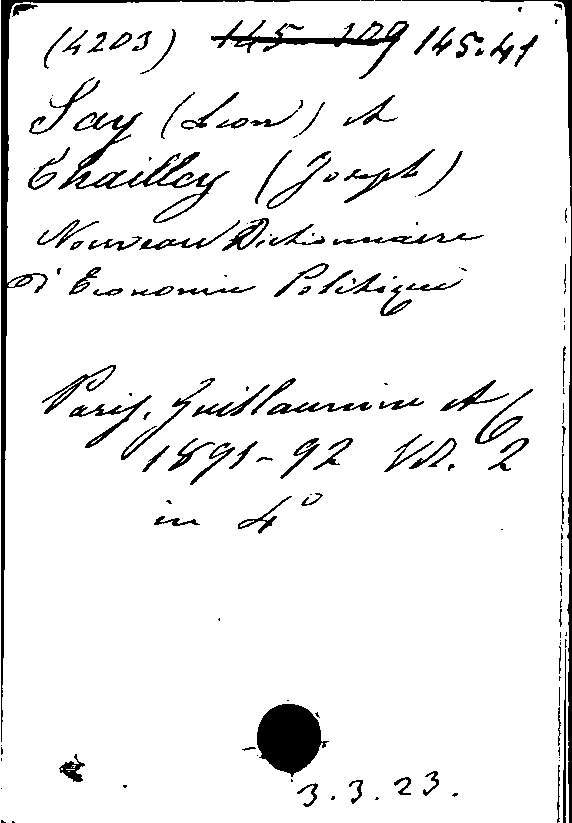 (4203) 145-109 145.41
Say (Leon) et
Chailley (Joseph)
Nouveau Dictionnaire
d'Economie Politique
Paris, Guillaumin et C
1891-92 Vol. 2
in 4°
3.3.23.